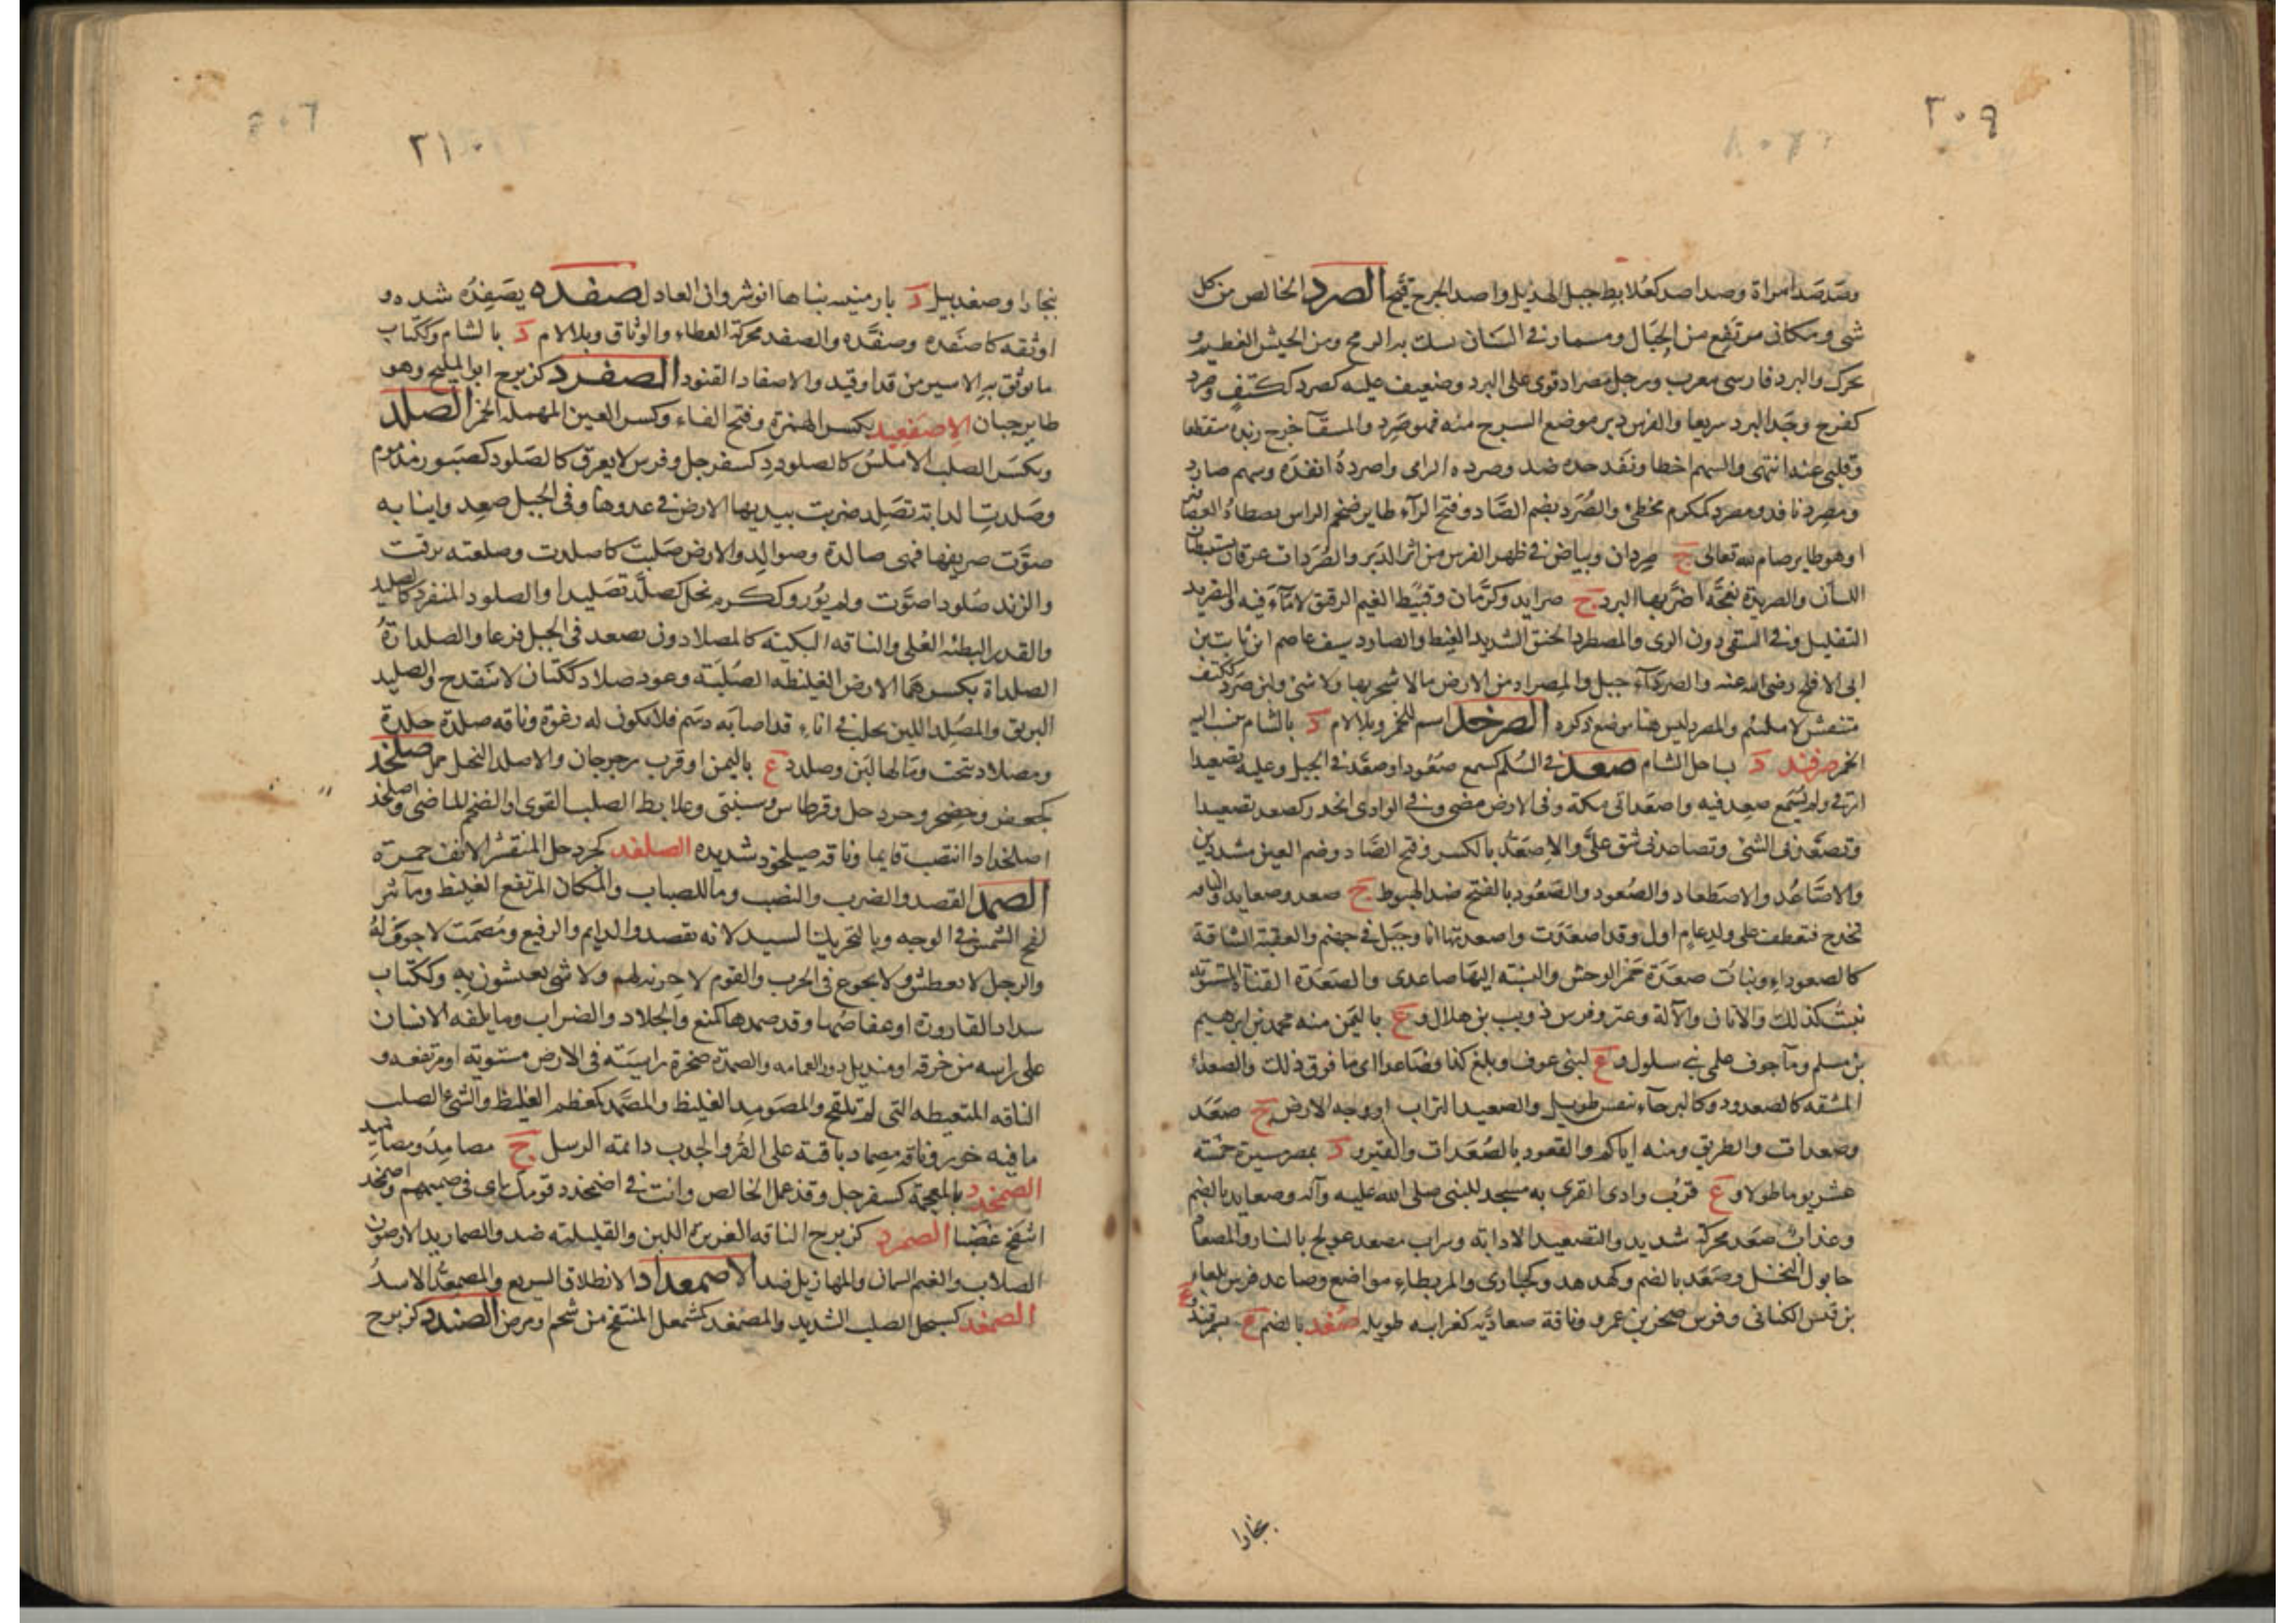 ٢٠٩
وصَدصَد امراة وصداصد كعُلابط جبل لهذيل واصد الجرح قيّح الصرد الخالص من كل
شى ومكان مرتفع من الجبال ومسمار فى السنان يشك به الرمح ومن الجيش العظيم و
يحرك والبرد فارسى معرب ورجل مصراد قوى على البرد وضعيف عليه كصرد ككتف وصرد
كفرح وجد البرد سريعا والفرس دبر موضع السرج منه فهو صَرِد والسقآ خرج زبده متقطعا
وقلبى عنه انتهى والسهم اخطا ونفذ حده ضد وصرده الرامى واصرده انفذه وسهم صارد
ومصرد نافذ ومصرد كمكرم مخطئ والصُرَد بضم الصاد وفتح الرآء طاير ضخم الراس يصطاد العصافير
او هو طاير صام لله تعالى ج صردان وبياض فى ظهر الفرس من اثر الدبر والصُرَدان عرقان يستبطنان
اللسان والصريدة نعجة اضر بها البرد ج صرايد وكرمّان وقبّيط الغيم الرقيق لا مآء فيه والتصريد
التقليل وفى السقى دون الرى والمصطرد الحنق الشديد الغيظ والصارد سيف عاصم ابن ثابت بن
ابى الاقلح رضى الله عنه والصردآء جبل والمصراد من الارض ما لا شجر بها ولا شى ولبن صَرِد ككتف
منتفش لا ملتئم والمصرد ليس هنا موضع ذكره الصرخد اسم للخمر وبلا لام د بالشام ينسب اليه
الخمر صرفند د بساحل الشام صعد فى السُلم كسمع صُعُودا وصعّد فى الجبل وعليه تصعيدا
ارتقى ولم يُسمع صعِد فيه واصعد اتى مكة وفى الارض مضى وفى الوادى انحدر كصعد تصعيدا
وتصعّدنى الشئ وتصاعدنى شق علىّ والاصّعّد بالكسر وفتح الصّاد وضم العين مشددين
والاصّاعُد والاصطعاد والصُعود والصَعُود بالفتح ضد الهبوط ج صعد وصعايد والناقه
تخدج فتعطف على ولد عام اول وقد اصعَدَت واصعدتها انا وجبل فى جهنم والعقبة الشاقة
كالصعوداء وبنات صعدَة حُمر الوحش والنسبة اليها صاعدى والصَعَدَة القناة المستوية
تنبت كذلك والاتان والآلة وعنز وفرس ذويب بن هلال وع باليمن منه محمد بن ابراهيم
بن مسلم ومآ جوف علمى بنى سلول وع لبنى عوف وبلغ كذا فصاعدا اى ما فوق ذلك والصعدآء
المشقه كالصعدود وكالبرحآء تنفس طويل والصعيد التراب او وجه الارض ج صعد
وصعدات والطريق ومنه اياكم والقعود بالصُعَدات والقبر ود بمصر مسيرة خمسة
عشر يوما طولا وع قرب وادى القرى به مسجد للنبى صلى الله عليه وآله وصعايد بالضم
وعذاب صعَد محركة شديد والتصعيد الاذابة وشراب مصعد عولج بالنار والمصعاد
حابول النخل وصَعَد بالضم وكهدهد وكحبارى والمريطاء مواضع وصاعد فرس بلعاء
بن قيس الكنانى وفرس صخر بن عمرو وناقة صعاديّه كغرابيه طويله صُغد بالضم ع بسمرقند وع
بخارا
٢١٠
بنجارا وصغدبيل د بارمنيه بناها انوشروان العادل صفده يصفِدُه شده و
اوثقه كاصفده وصفّده والصفد محركة العطاء والوثاق وبلا لام د بالشام وككتاب
ما يوثق به الاسير من قد او قيد والاصفاد القيود الصفرد كزبرج ابو المليح وهو
طاير جبان الاصفعيد بكسر الهمزة وفتح الفاء وكسر العين المهمله الخمر الصلد
ويكسَر الصلب الاملس كالصلودد كسفرجل وفرس لا يعرق كالصَلود كصبور مذموم
وصَلَدت الدابة تصَلِد ضربت بيديها الارض فى عدوها وفى الجبل صعد وانيابه
صوّت صريفها فهى صالدة وصوالد والارض صَلبت كاصلدت وصلعته برقت
والزند صلودا صوّت ولم يور وككرم بخل كصلّد تصليدا والصلود المنفرد كالصليد
والقدر البطئه الغلى والناقه البكيئة كالمصلاد ومن يصعد فى الجبل فزعا والصلداءة
الصلداة بكسرهما الارض الغليظه الصُلبَة وعود صلاد ككتان لا ينقدح والصليد
البريق والمصلِد اللبن يحلب فى اناء قد اصابه دسم فلا يكون له رغوة وناقه صلدة جلدة
ومصلاد تنتج وما لها لبن وصلدد ع باليمن او قرب رحرحان والاصلد البخل جمل صلخد
كجعفر وحضجر وجردحل وقرطاس وسبنتى وعلابط الصلب القوى او الضخم الماضى واصلخد
اصلخدادا انتصب قايما وناقه صيلخود شديده الصلغد كجردحل المتقشر الانف حمرة
الصمد القصد والضرب والنصب وما للضباب والمكان المرتفع الغليظ وما تر
لفح الشمس فى الوجه وبالتحريك السيد لانه يقصد والدايم والرفيع ومُصمَت لا جوف لهُ
والرجل لا يعطش ولا يجوع فى الحرب والقوم لا حرفة لهم ولا شى يعيشون به وككتاب
سداد القارورة او عفاصها وقد صمدها كمنع والجلاد والضراب وما يلفه الانسان
على راسه من خرقه او منديل دون العمامه والصمدة صخرة راسيَة فى الارض مستويه او مرتفعه و
الناقه المتعيطه التى لم تلقح والمصَومِد الغليظ والمصّمد كمعظم الغليظ والشئ الصلب
ما فيه خور وناقه مصماد باقية على القُر والجدب دائمة الرسل ج مصامِدُ ومصاميد
الصمخدد بالمعجمة كسفرجل وقذعمل الخالص وانت فى اضمخدد قومك اى فى صميمهم واصمخد
انتفخ غضبا الصمرد كزبرج الناقه الغزيرة اللبن والقليلته ضد والصماريد الارضون
الصلاب والغنم السمان والمهازيل ضد الاصمعداد الانطلاق السريع والمصمعدّ الاسدُ
الصمغد كسبحل الصلب الشديد والمصمغد كشمعل المنتفخ من شحم او مرض الصندد كزبرج